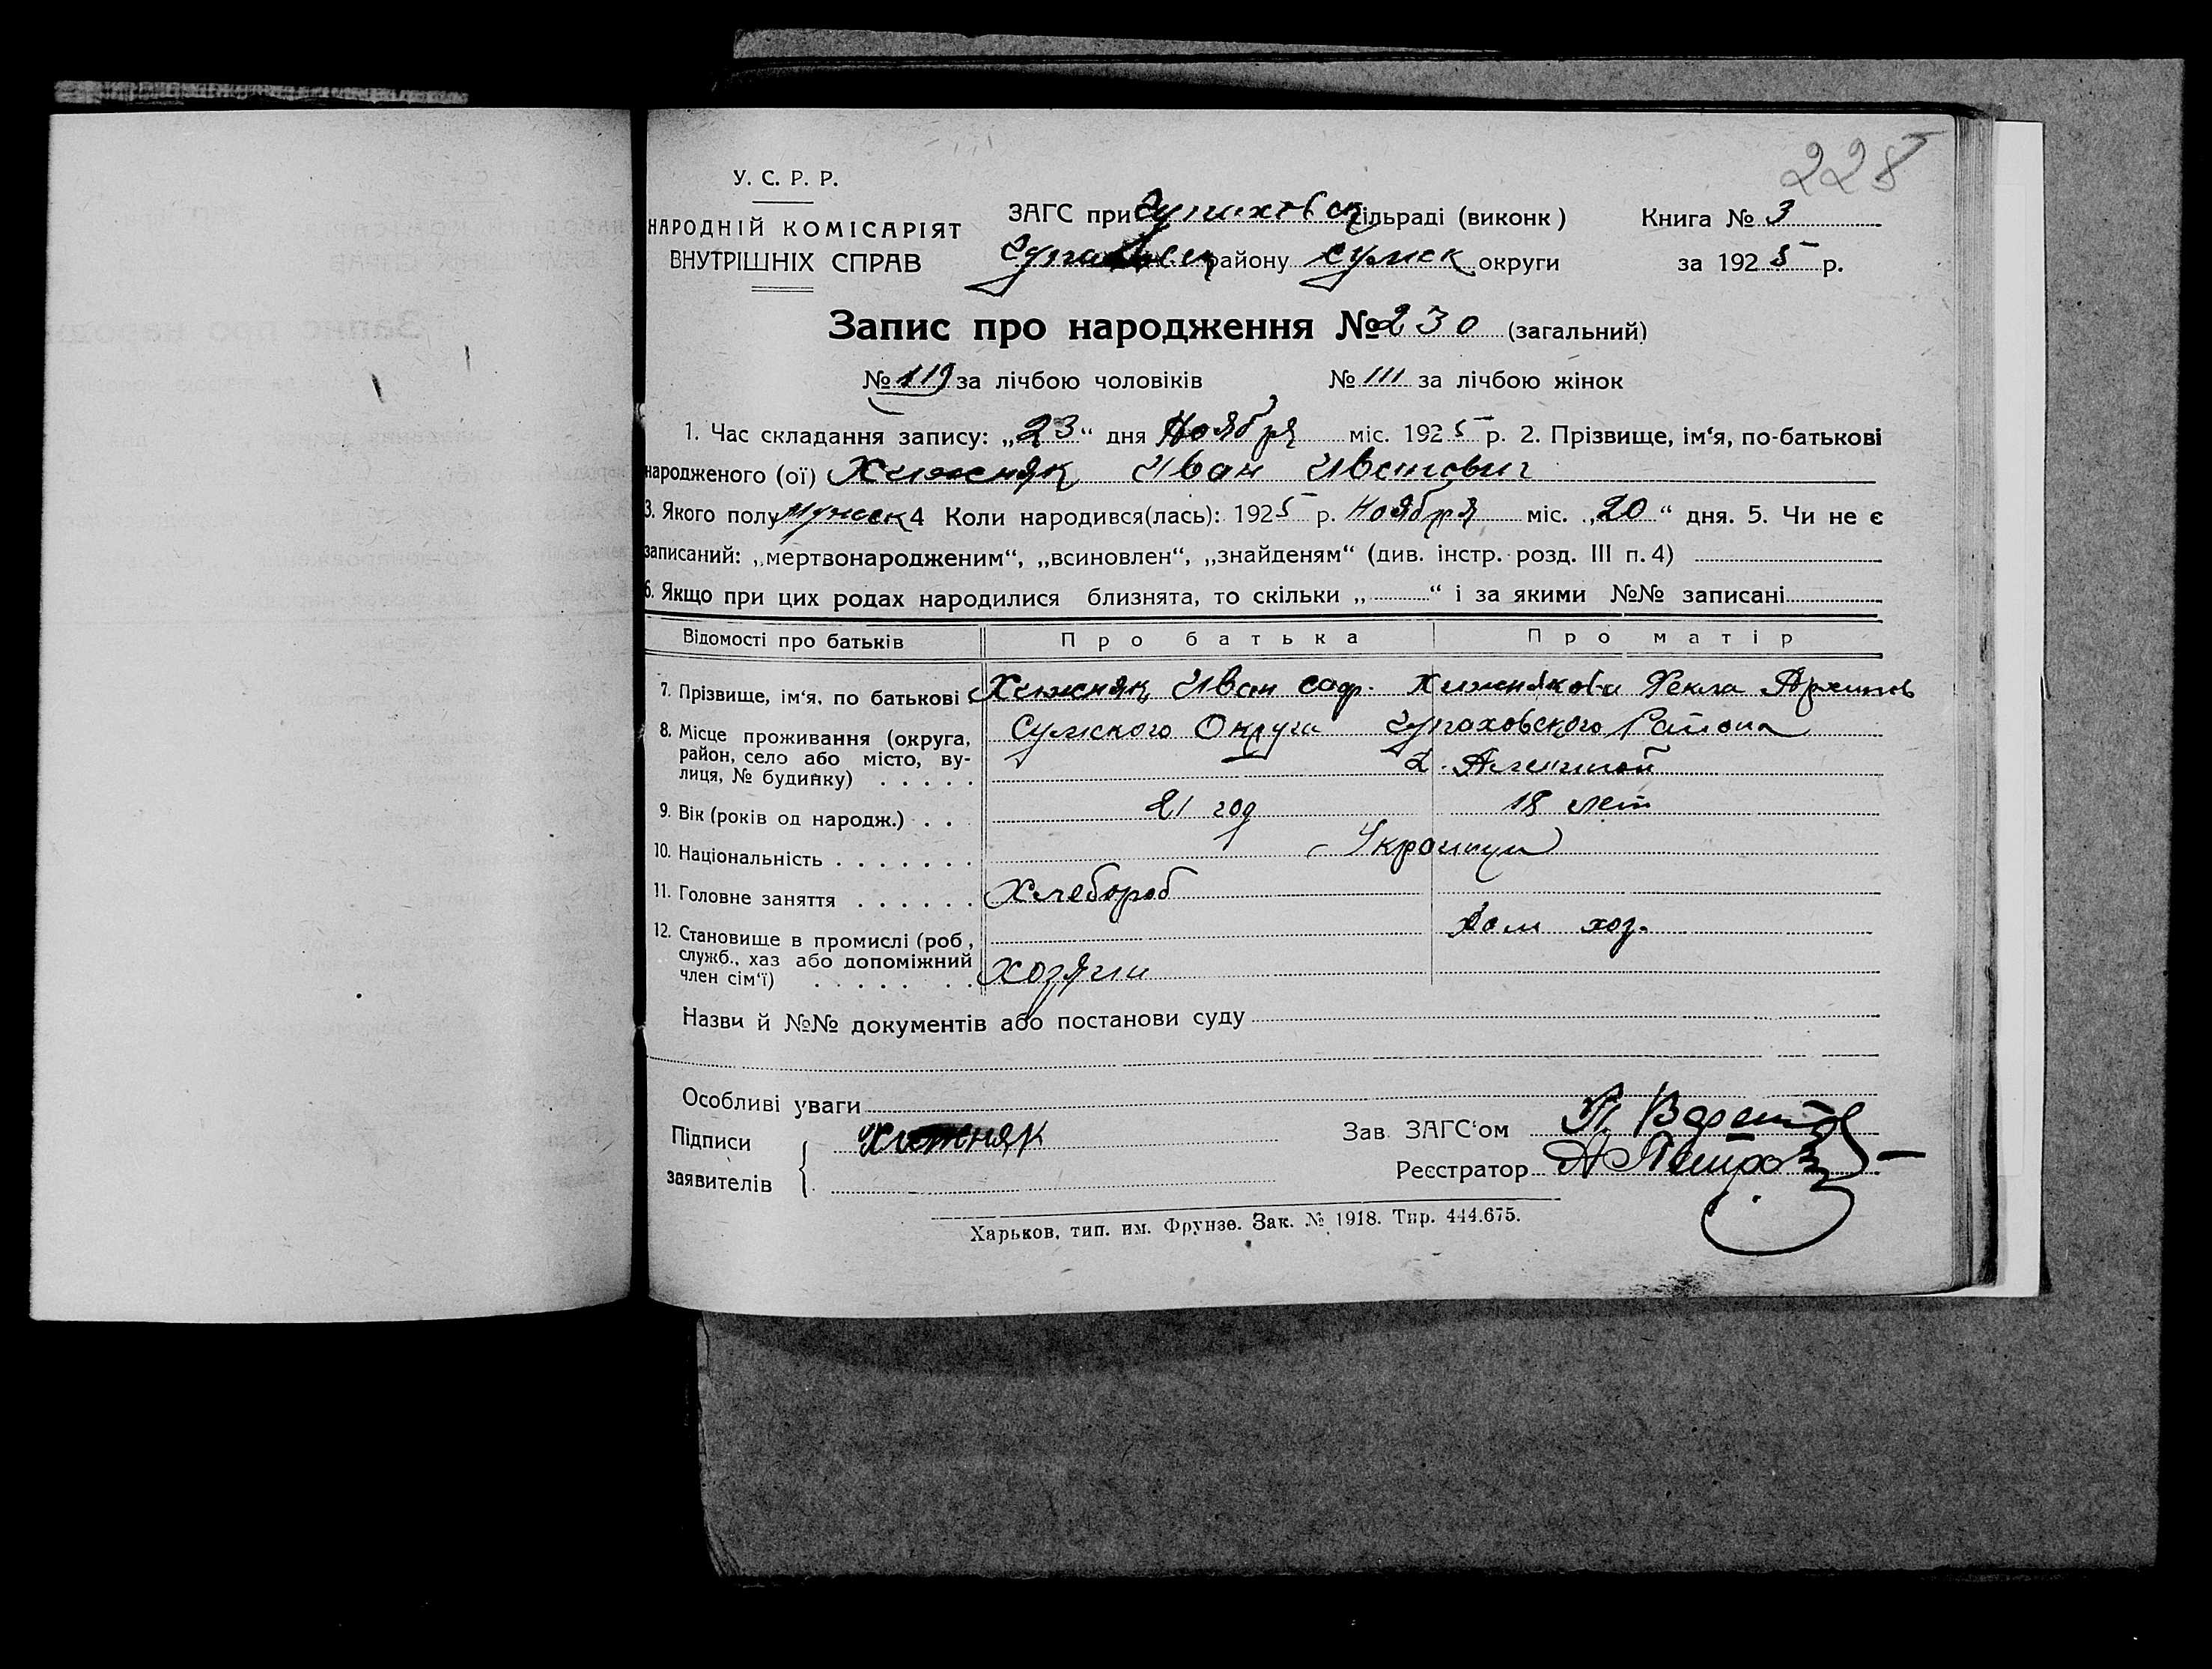 228
У. С. Р. Р.
НАРОДНІЙ КОМІСАРІЯТ
ВНУТРІШНІХ СПРАВ
ЗАГС при сільраді (виконк)
району Сумск округи
Книга № 3
за 1925 р.
Запис про народження № 230 (загальний)
№ 119 за лічбою чоловіків № 111 за лічбою жінок
1. Час складання запису: „23“ дня Ноября міс. 1925 р. 2. Прізвище, ім‘я, по-батькові
народженого (ої) Хижняк Иван Иванович
3. Якого полу мужск 4 Коли народився(лась): 1925 р. Ноября міс. „20“ дня. 5. Чи не є
записаний: „мертвонародженим“, „всиновлен“, „знайденям“ (див. інстр. розд. III п. 4)
6. Якщо при цих родах народилися близнята, то скільки „ “ і за якими №№ записані
Відомості про батьків Про батька Про матір
7. Прізвище, ім‘я, по батькові Хижняк Иван Хижнякова Фекла Архипов
8. Місце проживання (округа, район, село або місто, вулиця, № будинку) Сумского Округа Района
9. Вік (років од народж.) 21 год 18 лет
10. Національність Украинцы
11. Головне заняття Хлебороб
12. Становище в промислі (роб, служб., хаз або допоміжний член сім‘ї) Хозяин дом хоз.
Назви й №№ документів або постанови суду
Особливі уваги
Підписи заявителів Хижняк
Зав. ЗАГС‘ом
Реєстратор
Харьков, тип. им. Фрунзе. Зак. № 1918. Тир. 444.675.